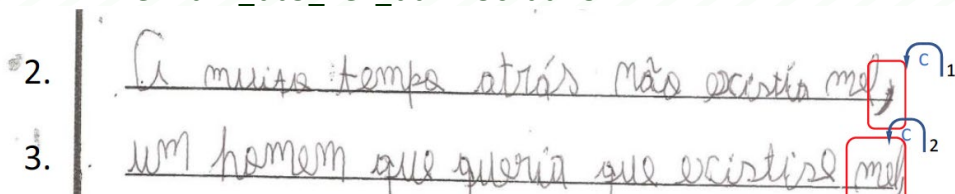 2. A muito tempo atrás não existia mel, C 1
3. um homem que queria que existise mel C 2